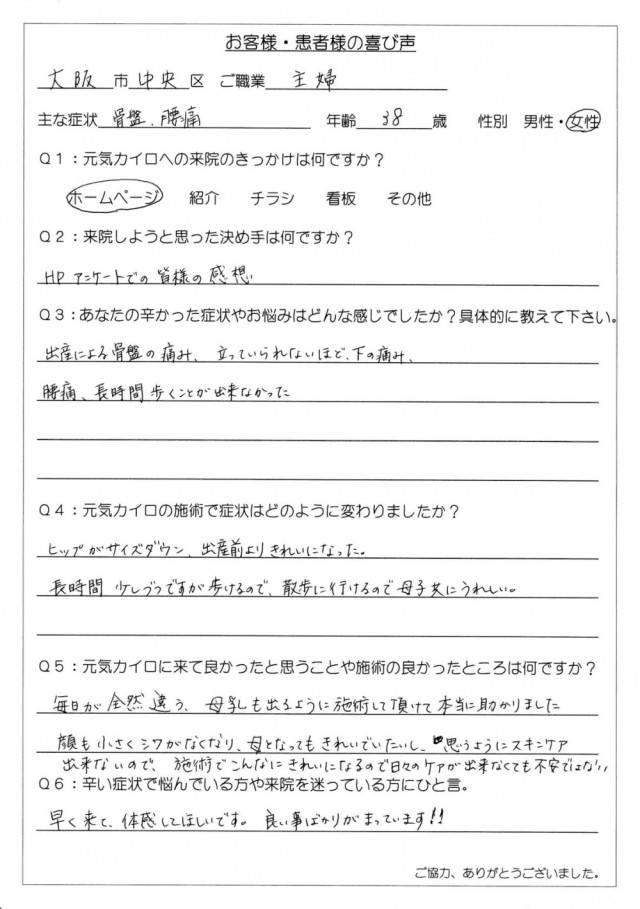 お客様・患者様の喜び声
大阪 市 中央 区 ご職業 主婦
主な症状 骨盤、腰痛 年齢 38 歳 性別 男性・女性
Q1：元気カイロへの来院のきっかけは何ですか？
ホームページ 紹介 チラシ 看板 その他
Q2：来院しようと思った決め手は何ですか？
HP アンケートでの皆様の感想
Q3：あなたの辛かった症状やお悩みはどんな感じでしたか？具体的に教えて下さい。
出産による骨盤の痛み、立っていられないほど、下の痛み、
腰痛、長時間歩くことが出来なかった
Q4：元気カイロの施術で症状はどのように変わりましたか？
ヒップがサイズダウン、出産前よりきれいになった。
長時間 少しづつですが歩けるので、散歩に行けるので母子共にうれしい。
Q5：元気カイロに来て良かったと思うことや施術の良かったところは何ですか？
毎日が全然違う、母乳も出るように施術して頂けて本当に助かりました
顔も小さくシワがなくなり、母となってもきれいでいたいし、思うようにスキンケア
出来ないので、施術でこんなにきれいになるので日々のケアが出来なくても不安ではない
Q6：辛い症状で悩んでいる方や来院を迷っている方にひと言。
早く来て、体感してほしいです。良い事ばかりがまっています!!
ご協力、ありがとうございました。